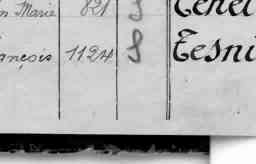 Marie 821 S
ançois 1124 S Tesni